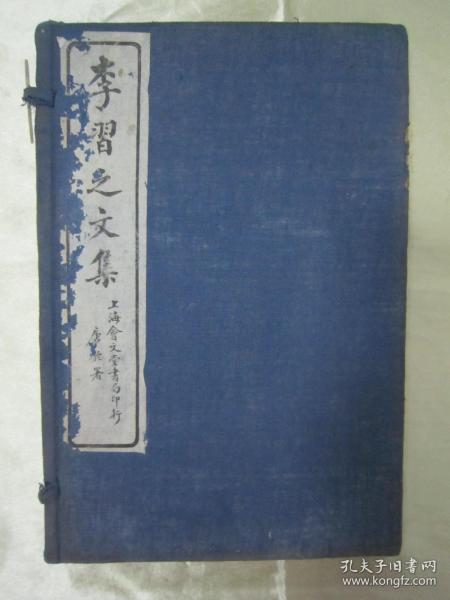 李習之文集
上海會文堂書局印行
唐駝署
孔夫子旧书网
www.kongfz.com